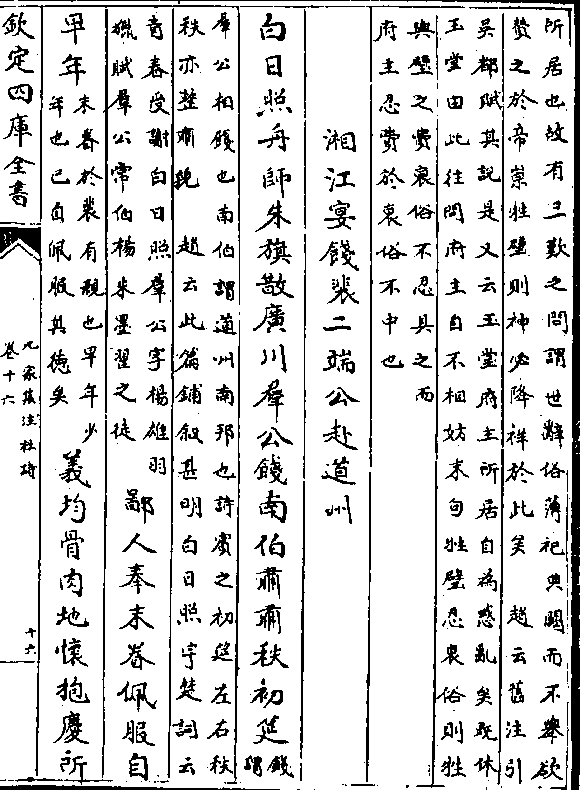 所居也故有三歎之問謂世辭俗薄祀典闕而不舉欲
贄之於帝崇牲璧則神必降祥於此矣　趙云舊注引
吳都賦其說是又云玉堂府主所居自為惑亂矣既休
玉堂由此往問府主自不相妨末句牲璧忍衰俗則牲
與璧之費衰俗不忍具之而
府主忍費於衰俗不中也
湘江宴餞裴二端公赴道州
白日照舟師朱旗散廣川羣公餞南伯肅肅秩初筵
餞謂
羣公相餞也南伯謂道州南邦也詩賓之初筵左右秩
秩亦整肅貌　趙云此篇鋪敘甚明白日照字楚詞云
青春受謝白日照羣公字楊雄羽
獵賦羣公常伯楊朱墨翟之徒
鄙人奉末眷佩服自
早年
末眷於裴有親也早年少
年也已自佩服其徳矣
義均骨肉地懷抱慶所
欽定四庫全書
九家集注杜詩
卷十六
十六